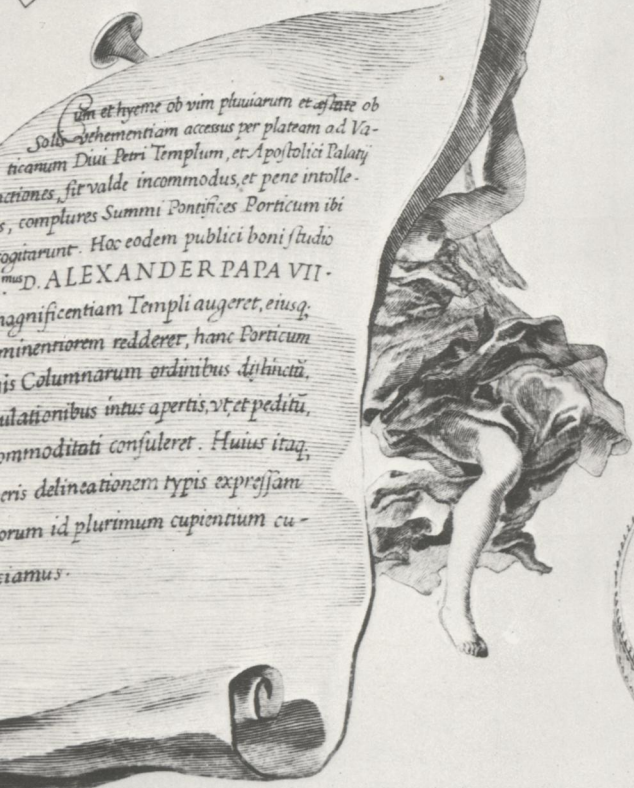 Cum et hyeme ob vim pluviarum et æstate ob
Solis vehementiam accessus per plateam ad Va-
ticanum Diui Petri Templum, et Apostolici Palatij
nctiones, fit valde incommodus, et pene intolle-
s, complures Summi Pontifices Porticum ibi
cogitarunt. Hoc eodem publici boni studio
mus D. ALEXANDER PAPA VII.
magnificentiam Templi augeret, eiusq;
minentiorem redderet, hanc Porticum
nis Columnarum ordinibus distinctū,
ulationibus intus apertis, vt et peditū,
ommoditati consuleret. Huius itaq;
eris delineationem typis expressam
orum id plurimum cupientium cu-
ciamus.